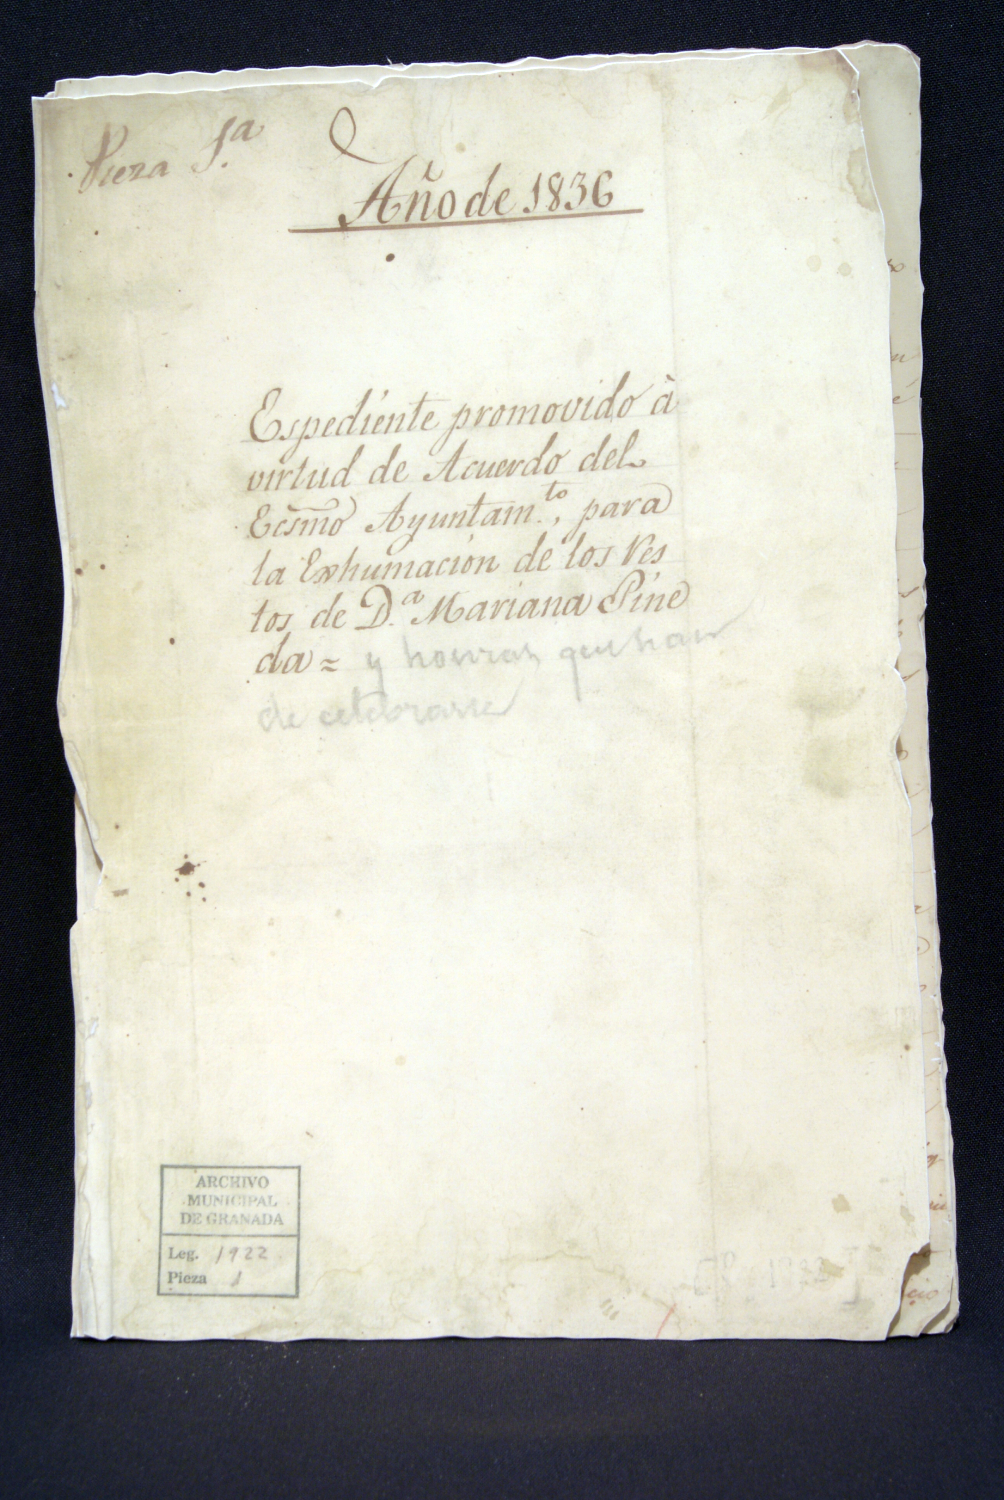 Pieza 1.ª
Año de 1836
Espediente promovido à
virtud de Acuerdo del
Ecsmo Ayuntam.to, para
la Exhumacion de los Res
tos de D.ª Mariana Pine
da = y honras que han
de celebrarse
ARCHIVO
MUNICIPAL
DE GRANADA
Leg. 1922
Pieza 1